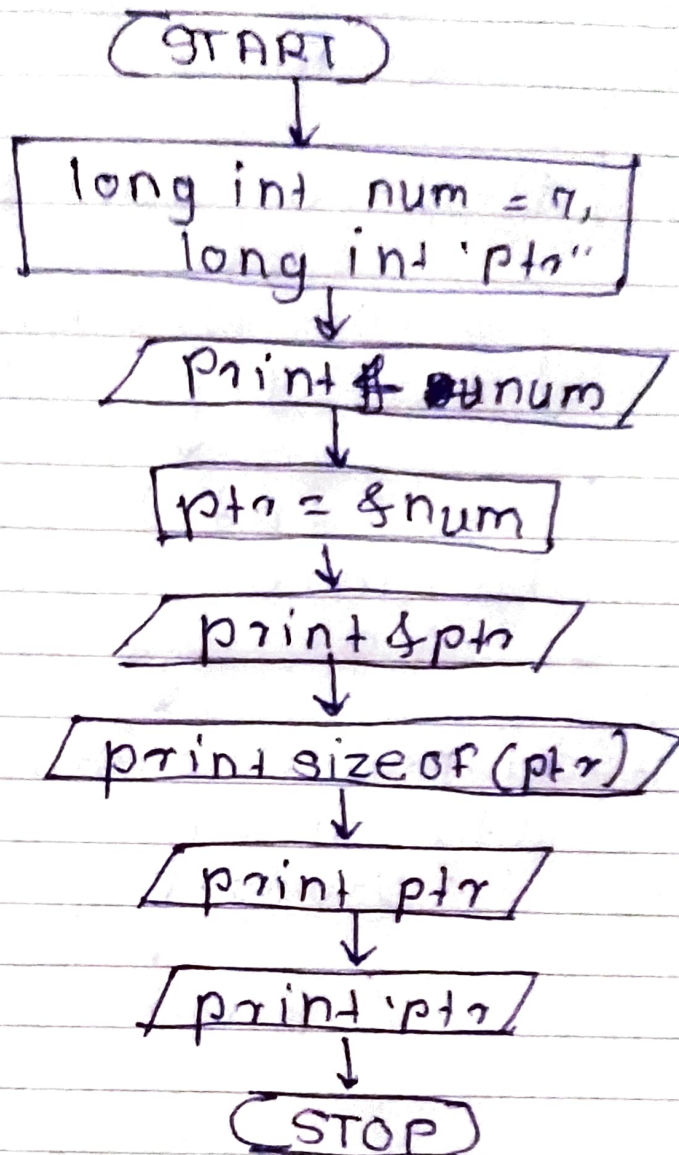 START
long int num = 7,
long int 'ptr"
Print num
ptr = &num
print &ptr
print sizeof(ptr)
print ptr
print 'ptr
STOP